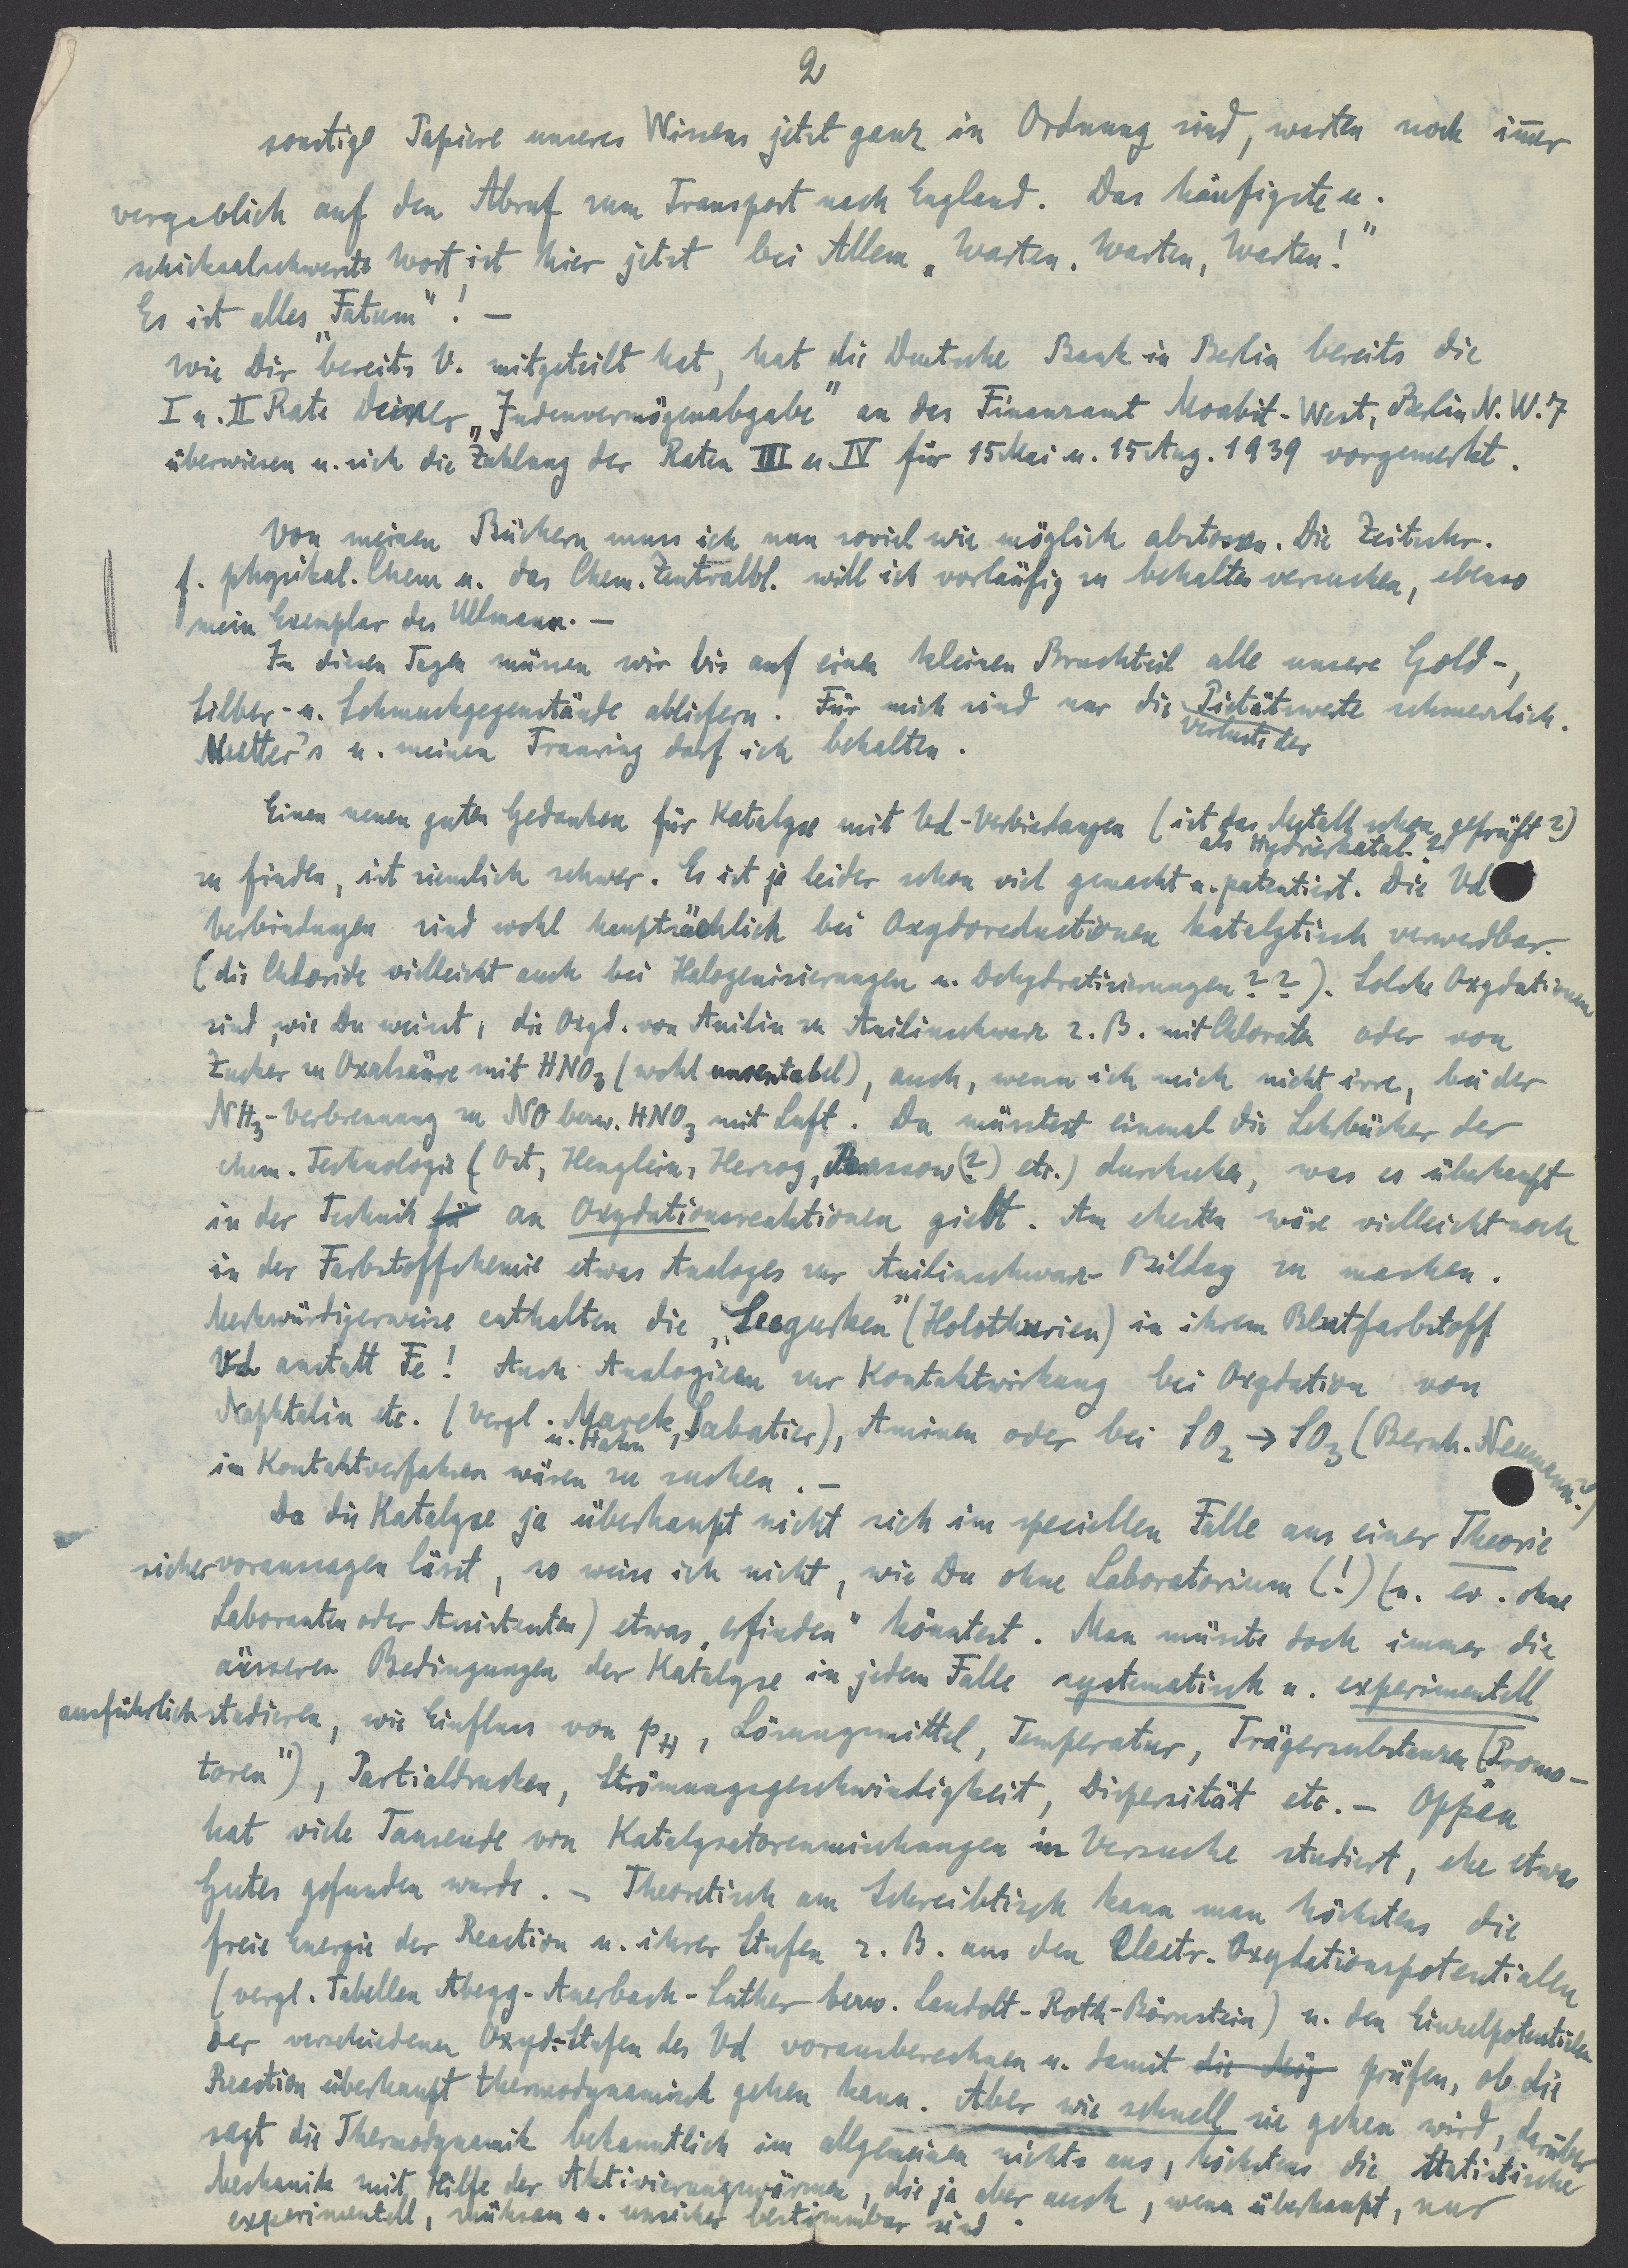 2
sonstige Papiere unseres Wissens jetzt ganz in Ordnung sind, warten noch im̅er
vergeblich auf den Abruf zum Transport nach England. Das häufigste u.
schicksalschwerste Wort ist hier jetzt bei Allem „Warten, Warten, Warten!"
Es ist alles „Fatum"! —
Wie Dir bereits V. mitgeteilt hat, hat die Deutsche Bank in Berlin bereits die
I u. II Rate Deiner „Judenvermögenabgabe" an das Finanzamt Moabit-West, Berlin N.W.7
überwiesen u. sich die Zahlung der Raten III u. IV für 15 Mai u. 15 Aug. 1939 vorgemerkt.
Von meinen Büchern muss ich nun soviel wie möglich abstossen. Die Zeitschr.
f. physikal. Chem u. das Chem. Zentralbl. will ich vorläufig zu behalten versuchen, ebenso
mein Exemplar des Ullmann. —
In diesen Tagen müssen wir bis auf einen kleinen Bruchteil alle unsere Gold-,
Silber- u. Schmuckgegenstände abliefern. Für mich sind nur die Pietätswerte schmerzlich.
Verluste der
Mutter's u. meinen Trauring darf ich behalten.
Einen neuen guten Gedanken für Katalyse mit Vd-Verbindungen (ist das Metall schon geprüft?)
als Hydrierkatal.?
zu finden, ist ziemlich schwer. Es ist ja leider schon viel gemacht u. patentiert. Die Vd
Verbindungen sind wohl hauptsächlich bei Oxydoreductionen katalytisch verwendbar.
(die Chloride vielleicht auch bei Halogenisierungen u. Dehydratisierungen??). Solche Oxydationen
sind, wie Du weisst, die Oxyd. von Anilin zu Anilinschwarz z. B. mit Chloraten oder von
Zucker zu Oxalsäure mit HNO3 (wohl unrentabel), auch, wenn ich mich nicht irre, bei der
NH3-Verbrennung zu NO bezw. HNO3 mit Luft. Du müsstest einmal die Lehrbücher der
chem. Technologie (Ost, Henglein, Herzog, Rassow(?) etc.) durchsehen, was es überhaupt
in der Technik für an Oxydationsreaktionen giebt. Am ehesten wäre vielleicht noch
in der Farbstoffchemie etwas Analoges zur Anilinschwarz-Bildung zu machen.
Merkwürdigerweise enthalten die „Seegurken" (Holothurien) in ihrem Blutfarbstoff
Vd anstatt Fe! Auch Analogieen zur Kontaktwirkung bei Oxydation von
Naphtalin etc. (vergl. Marek, Sabatier), Aminen oder bei SO2 → SO3 (Bernh. Neumann?)
u. Hahn
im Kontaktverfahren wären zu suchen. —
Da die Katalyse ja überhaupt nicht sich im speciellen Falle aus einer Theorie
sicher voraussagen lässt, so weiss ich nicht, wie Du ohne Laboratorium (!) (u. ev. ohne
Laboranten oder Assistenten) etwas „erfinden" könntest. Man müsste doch immer die
äusseren Bedingungen der Katalyse in jedem Falle systematisch u. experimentell
ausführlich studieren, wie Einfluss von pH, Lösungsmittel, Temperatur, Trägersubstanzen („Promo-
toren"), Partialdrucken, Strömungsgeschwindigkeit, Dispersität etc. — Oppau
hat viele Tausende von Katalysatorenmischungen in Versuche studiert, ehe etwas
Gutes gefunden wurde. — Theoretisch am Schreibtisch kann man höchstens die
freie Energie der Reaction u. ihrer Stufen z. B. aus den Electr. Oxydationspotentialen
(vergl. Tabellen Abegg-Auerbach-Luther bezw. Landolt-Roth-Börnstein) u. den Einzelpotentialen
der verschiedenen Oxyd.-Stufen des Vd vorausberechnen u. damit die Mög prüfen, ob die
Reaction überhaupt thermodynamisch gehen kann. Aber wie schnell sie gehen wird, darüber
sagt die Thermodynamik bekanntlich im allgemeinen nichts aus, höchstens die statistische
Mechanik mit Hilfe der Aktivierungswärmen, die ja aber auch, wenn überhaupt, nur
experimentell, mühsam u. unsicher bestimmbar sind.